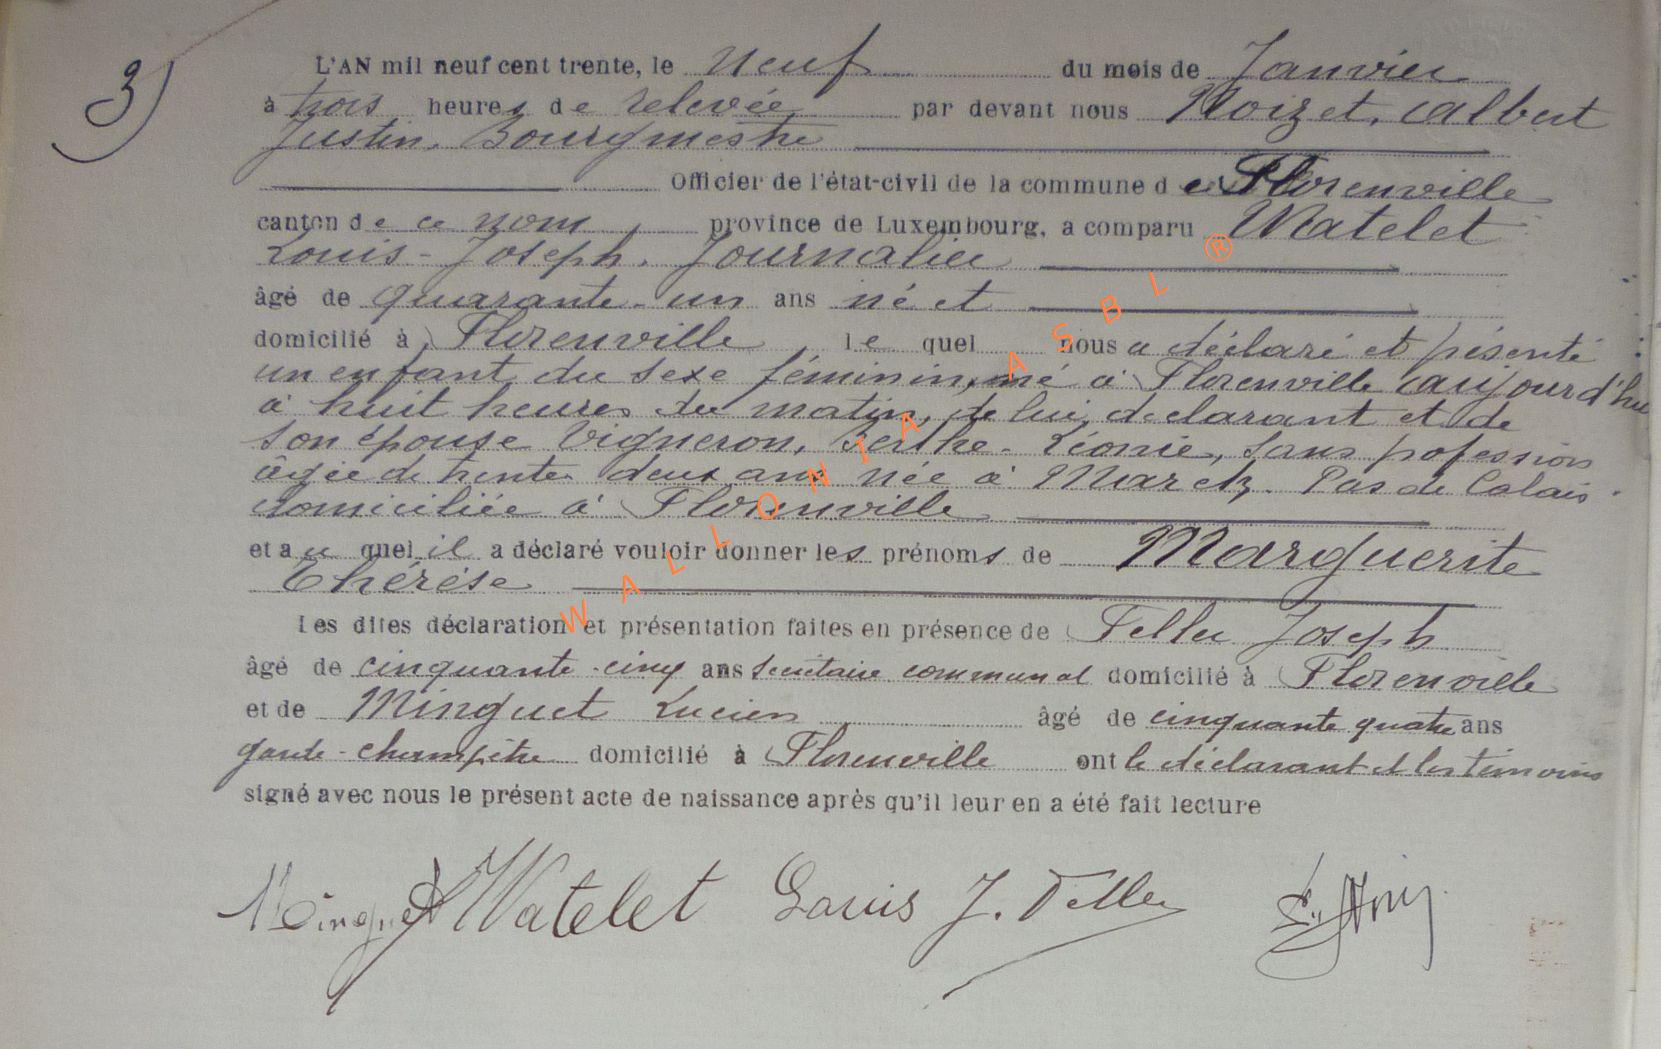 3)
L'AN mil neuf cent trente, le neuf du mois de Janvier
à trois heures de relevée par devant nous Noizet, Albert
Justin, Bourgmestre
Officier de l'état-civil de la commune de Florenville
canton de ce nom province de Luxembourg, a comparu Watelet
Louis-Joseph, Journalier
âgé de quarante-un ans né et
domicilié à Florenville, le quel nous a déclaré et présenté
un enfant du sexe féminin, né à Florenville aujourd'hui
à huit heures du matin, de lui déclarant et de
son épouse Vigneron, Berthe-Léonie, sans profession
âgée de trente deux ans née à Marck, Pas de Calais
domiciliée à Florenville
et au quel il a déclaré vouloir donner les prénoms de Marguerite
Thérèse
Les dites déclaration et présentation faites en présence de Feller Joseph
âgé de cinquante-cinq ans secrétaire communal domicilié à Florenville
et de Minguet Lucien âgé de cinquante quatre ans
garde-champêtre domicilié à Florenville ont le déclarant et les témoins
signé avec nous le présent acte de naissance après qu'il leur en a été fait lecture
Minguet Watelet Louis J. Feller
WALLONIA ASBL ®